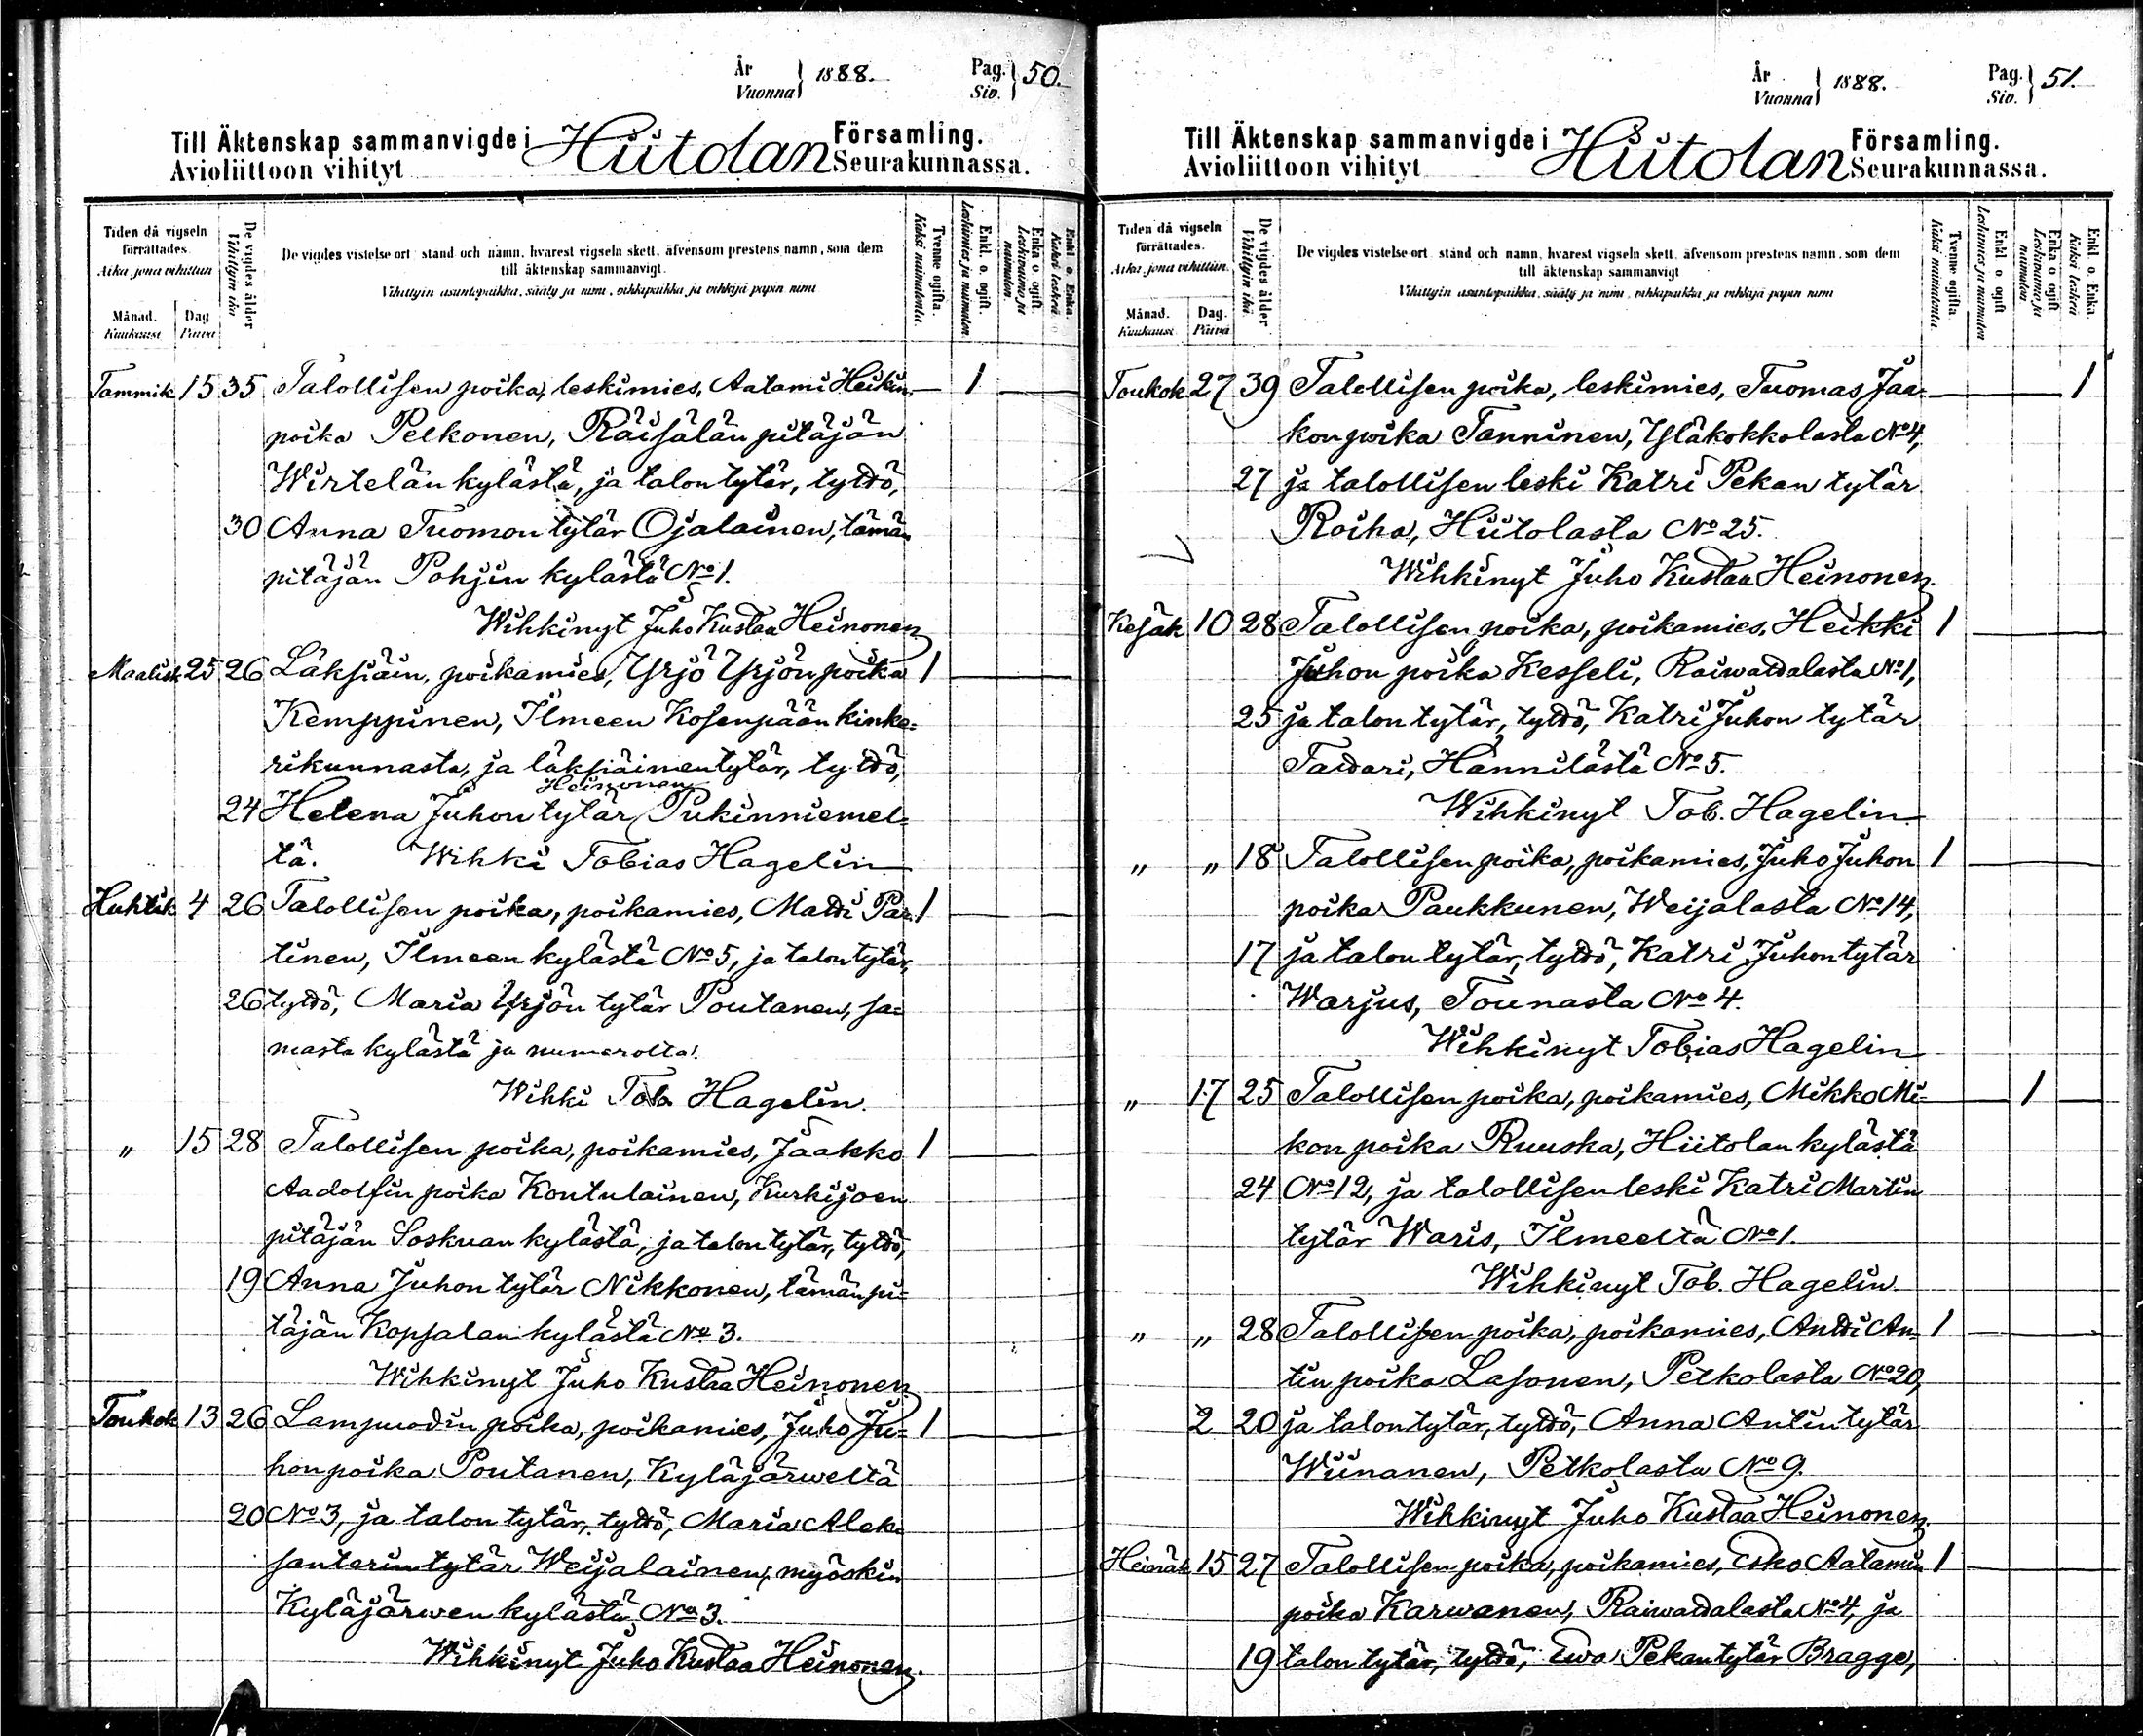 År
Vuonna } 1888.
Pag.
Siv. } 50.
Till Äktenskap sammanvigde i Hiitolan Församling.
Avioliittoon vihityt Seurakunnassa.
Tiden då vigseln förrättades.
Aika jona vihittiin
Månad.
Kuukausi
Dag
Päivä
De vigdes ålder
Vihittyin ikä
De vigdes vistelse ort stånd och namn, hvarest vigseln skett, äfvensom prestens namn, som dem
till äktenskap sammanvigt.
Vihittyin asuntopaikka, sääty ja nimi, vihkipaikka ja vihkijä papin nimi
Tvenne ogifta.
Kaksi naimatonta.
Enkl. o. ogift.
Leskimies ja naimaton.
Enka o ogift.
Leskivaimo ja naimaton.
Enkl. o. Enka.
Kaksi leskeä
Tammik 15 35 Talollisen poika, leskimies, Aatami Heikin- 1
poika Pelkonen, Räisälän pitäjän
Wirtelän kylästä, ja talon tytär, tyttö,
30 Anna Tuomon tytär Ojalainen, tämän
pitäjän Pohjin kylästä No 1.
Wihkinyt Juho Kustaa Heinonen
Maalisk 25 26 Läksiäin, poikamies, Yrjö Yrjön poika 1
Kemppinen, Ilmeen Kosenpään kinke-
rikunnasta, ja läksiäimen tytär, tyttö,
Heinonen
24 Helena Juhon tytär Pukinniemel-
tä. Wihki Tobias Hagelin
Huhtik 4 26 Talollisen poika, poikamies, Matti Par- 1
tinen, Ilmeen kylästä No 5, ja talon tytär,
26 tyttö, Maria Yrjön tytär Poutanen, sa-
masta kylästä ja numerolta.
Wihki Tob. Hagelin.
" 15 28 Talollisen poika, poikamies, Jaakko 1
Aadolfin poika Kontulainen, Kurkijoen
pitäjän Soskuan kylästä, ja talon tytär, tyttö,
19 Anna Juhon tytär Nikkonen, tämän pi-
täjän Kopsalan kylästä No 3.
Wihkinyt Juho Kustaa Heinonen
Toukok 13 26 Lampuodin poika, poikamies, Juho Ju- 1
hon poika Poutanen, Kyläjärweltä
20 No 3, ja talon tytär, tyttö, Maria Alek-
santerin tytär Weijalainen, myöskin
Kyläjärwen kylästä No 3.
Wihkinyt Juho Kustaa Heinonen.
År
Vuonna } 1888.
Pag.
Siv. } 51.
Till Äktenskap sammanvigde i Hiitolan Församling.
Avioliittoon vihityt Seurakunnassa.
Tiden då vigseln förrättades.
Aika jona vihittiin.
Månad.
Kuukausi
Dag.
Päivä
De vigdes ålder
Vihittyin ikä
De vigdes vistelse ort stånd och namn, hvarest vigseln skett, äfvensom prestens namn, som dem
till äktenskap sammanvigt
Vihittyin asuntopaikka, sääty ja nimi, vihkipaikka ja vihkijä papin nimi
Tvenne ogifta.
Kaksi naimatonta.
Enkl o. ogift
Leskimies ja naimaton
Enka o ogift
Leskivaimo ja naimaton
Enkl. o. Enka.
Kaksi leskeä
Toukok 27 39 Talollisen poika, leskimies, Tuomas Jaa- 1
kon poika Tanninen, Yläkokkolasta No 4,
27 ja talollisen leski Katri Pekan tytär
Roiha, Hiitolasta No 25.
Wihkinyt Juho Kustaa Heinonen.
Kesäk 10 28 Talollisen poika, poikamies, Heikki 1
Juhon poika Kesseli, Raiwattalasta No 1,
25 ja talon tytär, tyttö, Katri Juhon tytär
Tattari, Hännilästä No 5.
Wihkinyt Tob. Hagelin
" " 18 Talollisen poika, poikamies, Juho Juhon 1
poika Paukkunen, Weijalasta No 14,
17 ja talon tytär, tyttö, Katri Juhon tytär
Warjus, Tounasta No 4.
Wihkinyt Tobias Hagelin
" 17 25 Talollisen poika, poikamies, Mikko Mi- 1
kon poika Ruuska, Hiitolan kylästä
24 No 12, ja talollisen leski Katri Martin
tytär Waris, Ilmeeltä No 1.
Wihkinyt Tob. Hagelin.
" " 28 Talollisen poika, poikamies, Antti An- 1
tin poika Lasonen, Petkolasta No 20,
2 20 ja talon tytär, tyttö, Anna Antin tytär
Wiinanen, Petkolasta No 9.
Wihkinyt Juho Kustaa Heinonen.
Heinäk 15 27 Talollisen poika, poikamies, Esko Aatamin 1
poika Karwanen, Raiwattalasta No 4, ja
19 talon tytär, tyttö, Ewa Pekan tytär Bragge,